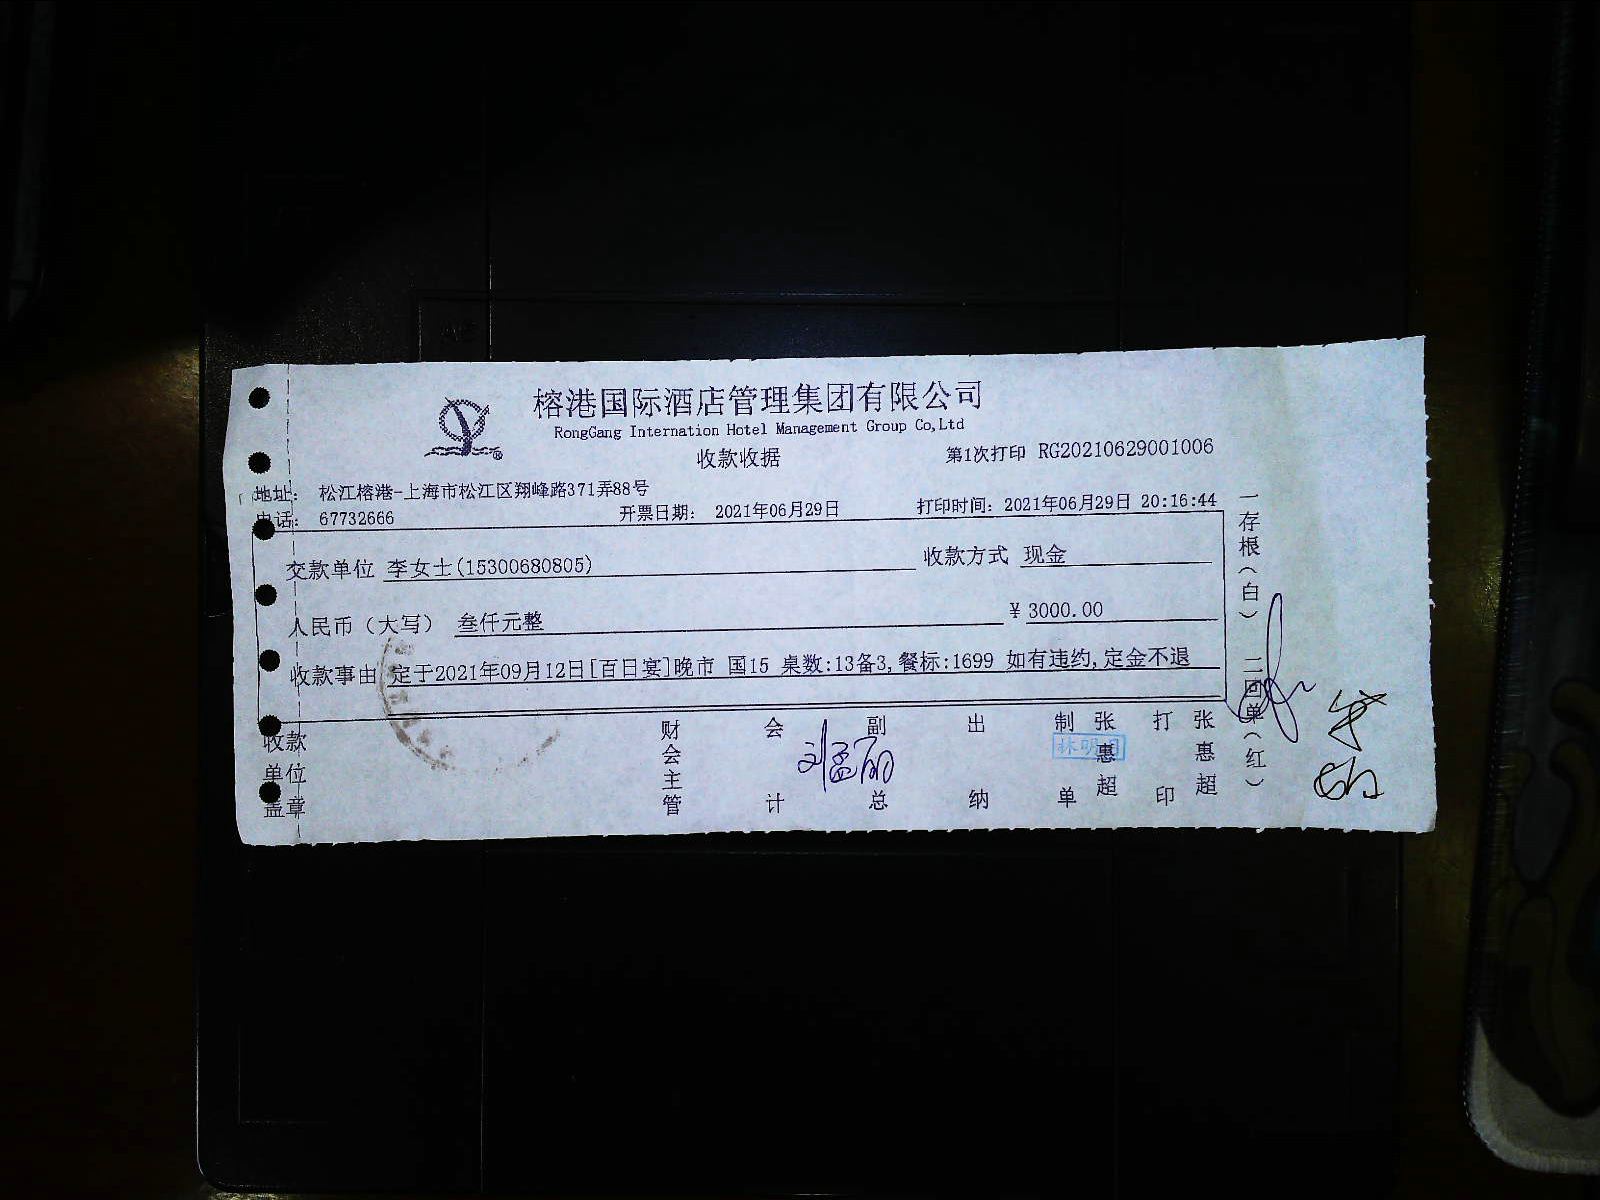 榕港国际酒店管理集团有限公司
RongGang Internation Hotel Management Group Co,Ltd
收款收据
第1次打印 RG20210629001006
地址: 松江榕港-上海市松江区翔峰路371弄88号
电话: 67732666 开票日期: 2021年06月29日 打印时间: 2021年06月29日 20:16:44
交款单位 李女士(15300680805) 收款方式 现金
人民币（大写） 叁仟元整 ¥ 3000.00
收款事由 定于2021年09月12日[百日宴]晚市 国15 桌数:13备3,餐标:1699 如有违约,定金不退
收款单位盖章
财会主管
会计
副总
刘孟丽
出纳
制单 张惠超
打印 张惠超
一存根（白） 二回单（红）